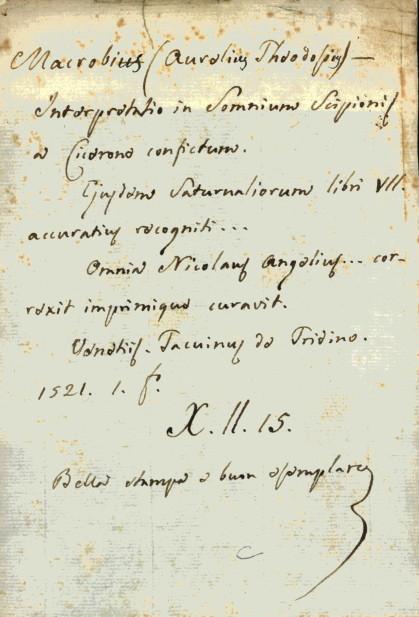 Macrobius (Aurelius Theodosius) —
Interpretatio in Somnium Scipionis
a Cicerone confictum.
Ejusdem Saturnaliorum libri VII.
accuratius recogniti...
Omnia Nicolaus Angelius... cor-
rexit imprimique curavit.
Venetiis. Tacuinus de Tridino.
1521. 1. f.
X. II. 15.
Bella stampa e buon esemplare
C